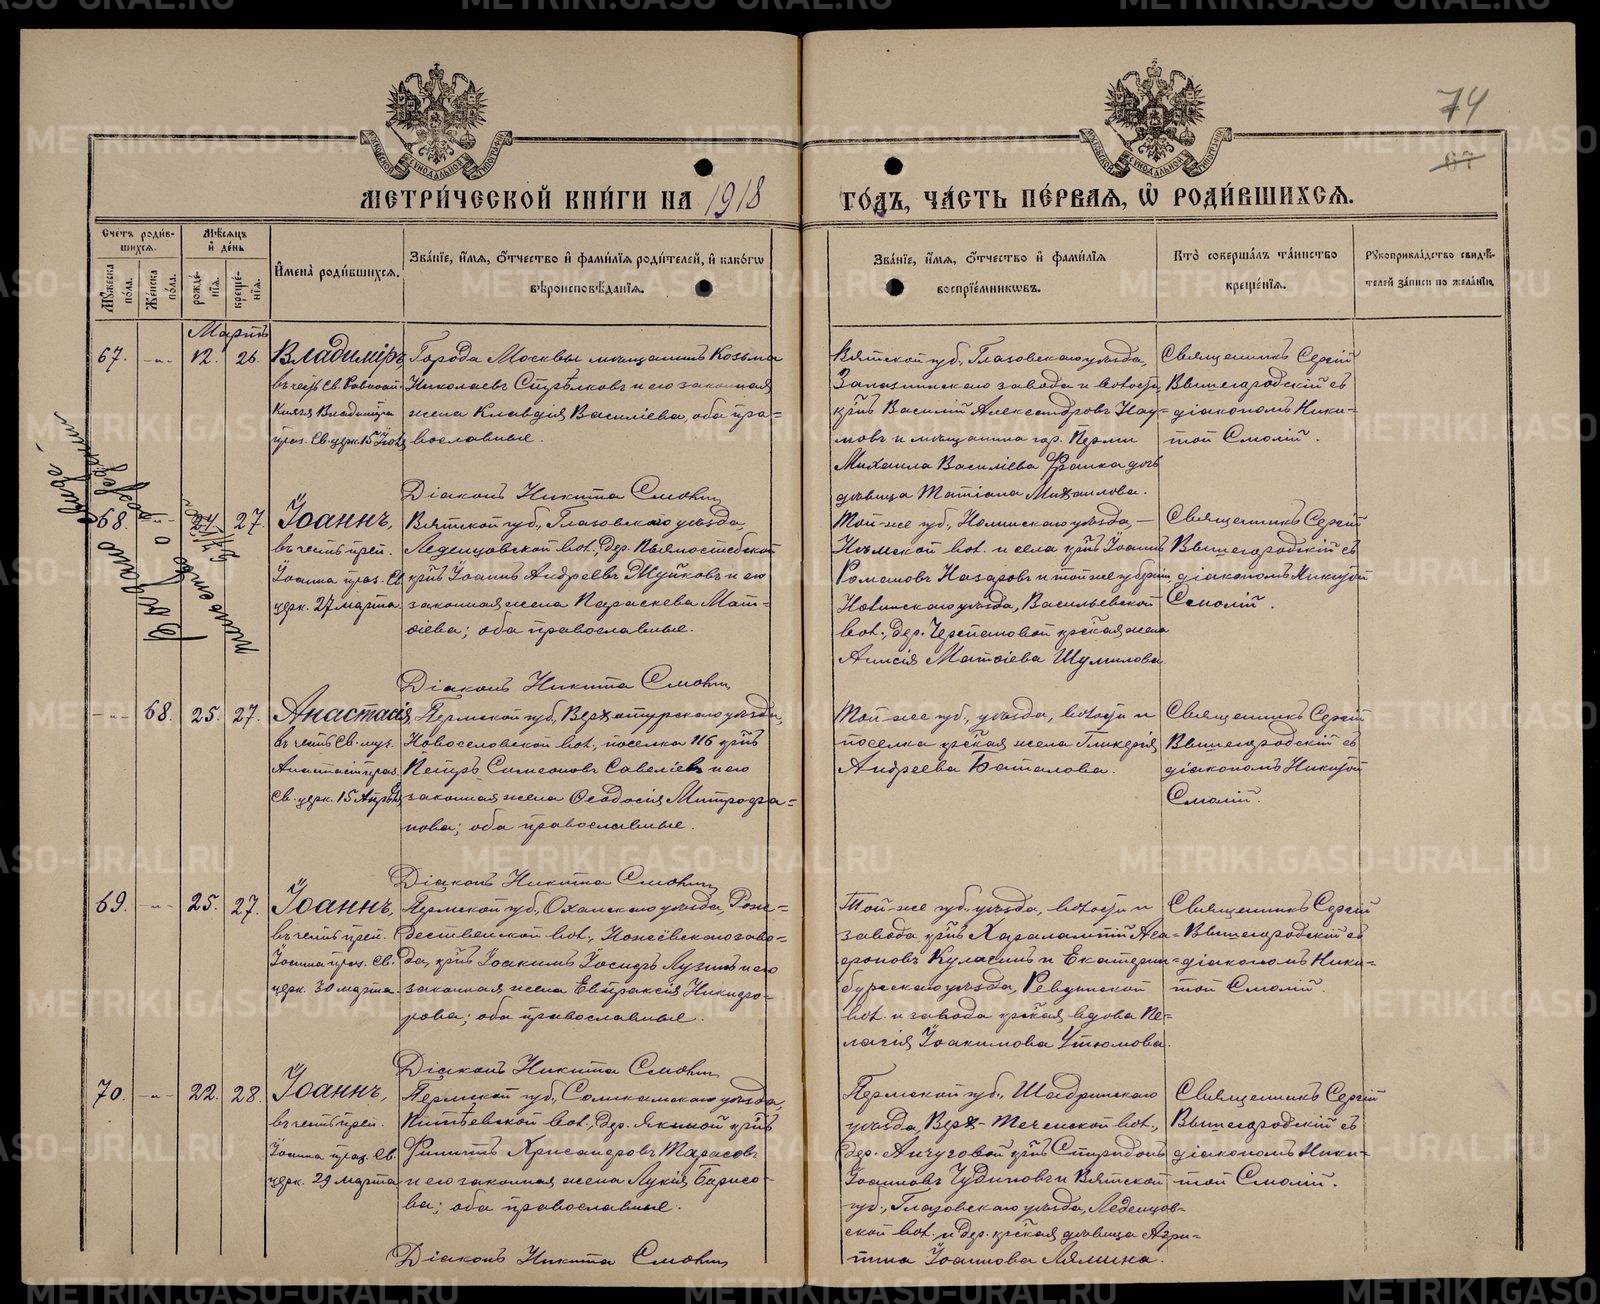 74
87
МЕТРИ́ЧЕСКОЙ КНИ́ГИ НА 1918
ГО́ДЪ, ЧА́СТЬ ПЕ́РВАЯ, Ѡ҆ РОДИ́ВШИХСЯ.
Счетъ роди́вшихся.
Мꙋ́жеска по́ла.
Же́нска по́ла.
Мѣ́сяцъ и҆ де́нь
рожде́нїя.
креще́нїя.
И҆мена̀ роди́вшихся.
Зва́нїе, и҆́мя, ѻ҆́тчество и҆ фами́лїѧ роди́телей, и҆ како́гѡ
вѣроисповѣ́данїя.
Зва́нїе, и҆́мя, ѻ҆́тчество и҆ фами́лїя
воспрїе́мникѡвъ.
Кто̀ соверша́лъ та́инство
креще́нїя.
Рꙋкоприкла́дство свидѣ́-
телей за́писи по жела́нїю.
Мартъ
67. -„- 12. 26.
Владиміръ,
въ честь Св. Равноап.
Князя Владиміра
праз. Св. церк. 15 Іюля
Города Москвы мѣщанинъ Козьма
Николаевъ Стрѣлковъ и его законная
жена Клавдія Василіева, оба пра-
вославные.
Діаконъ Никита Смолій
Вятской губ., Глазовскаго уѣзда,
завода и волости,
кр-нъ Василій Александровъ Нау-
мовъ и мѣщанина гор. Перми
Михаила Василіева дочь
дѣвица Татіана Михаилова.
Священникъ Сергій
Вышегородскій съ
діакономъ Ники-
той Смолій.
68. -„- 24. 27.
Іоаннъ,
въ честь преп.
Іоанна праз. Св.
церк. 27 марта
Вятской губ., Глазовскаго уѣзда,
Леденцовской вол., дер.
кр-нъ Іоаннъ Андреевъ Жуйковъ и его
законная жена Параскева Мат-
ѳіева; оба православные.
Діаконъ Никита Смолій
Той-же губ., Нолинскаго уѣзда, –
вол. и села кр-нъ Іоаннъ
Романовъ Назаровъ и той же губерніи,
Нолинскаго уѣзда, Васильевской
вол., дер. кр-ская жена
Анисія Матѳіева Шумилова.
Священникъ Сергій
Вышегородскій съ
діакономъ Никитой
Смолій.
-„- 68. 25. 27.
Анастасія,
въ честь Св. муч.
Анастасіи праз.
Св. церк. 15 Апрѣля
Пермской губ., Верхотурскаго уѣзда,
Новоселовской вол., поселка 116 кр-нъ
Петръ Симеоновъ Савеліевъ и его
законная жена Ѳеодосія Митрофа-
нова; оба православные.
Діаконъ Никита Смолій
Той-же губ., уѣзда, волости и
поселка кр-ская жена Гликерія
Андреева Баталова.
Священникъ Сергій
Вышегородскій съ
діакономъ Никитой
Смолій.
69. -„- 25. 27.
Іоаннъ,
въ честь преп.
Іоанна праз. Св.
церк. 30 марта.
Пермской губ., Оханскаго уѣзда, Рож-
дественской вол., Ножовскаго заво-
да, кр-нъ Іоакимъ Іосифъ Лузинъ и его
законная жена Евпраксія Никифо-
рова; оба православные.
Діаконъ Никита Смолій
Той-же губ., уѣзда, волости и
завода кр-нъ Харалампій Ага-
фоновъ Кулагинъ и Екатерин-
бургскаго уѣзда, Ревдинской
вол. и завода кр-ская вдова Пе-
лагія Іоакимова Утюмова.
Священникъ Сергій
Вышегородскій съ
діакономъ Ники-
той Смолій.
70. -„- 22. 28.
Іоаннъ,
въ честь преп.
Іоанна праз. Св.
церк. 29 марта
Пермской губ., Соликамскаго уѣзда,
вол., дер. Якиной кр-нъ
Филиппъ Хрисанфовъ Тарасовъ
и его законная жена Лукія Борисо-
ва; оба православные.
Діаконъ Никита Смолій
Пермской губ., Шадринскаго
уѣзда, Верх-Теченской вол.,
дер. Анчуговой кр-нъ Спиридонъ
Іоанновъ Чудиновъ и Вятской
губ., Глазовскаго уѣзда, Леденцов-
ской вол. и дер. кр-ская дѣвица Агри-
пина Іоаннова Лямина.
Священникъ Сергій
Вышегородскій съ
діакономъ Ники-
той Смолій.
Выдано свиде-
тельство о рождении
METRIKI.GASO-URAL.RU